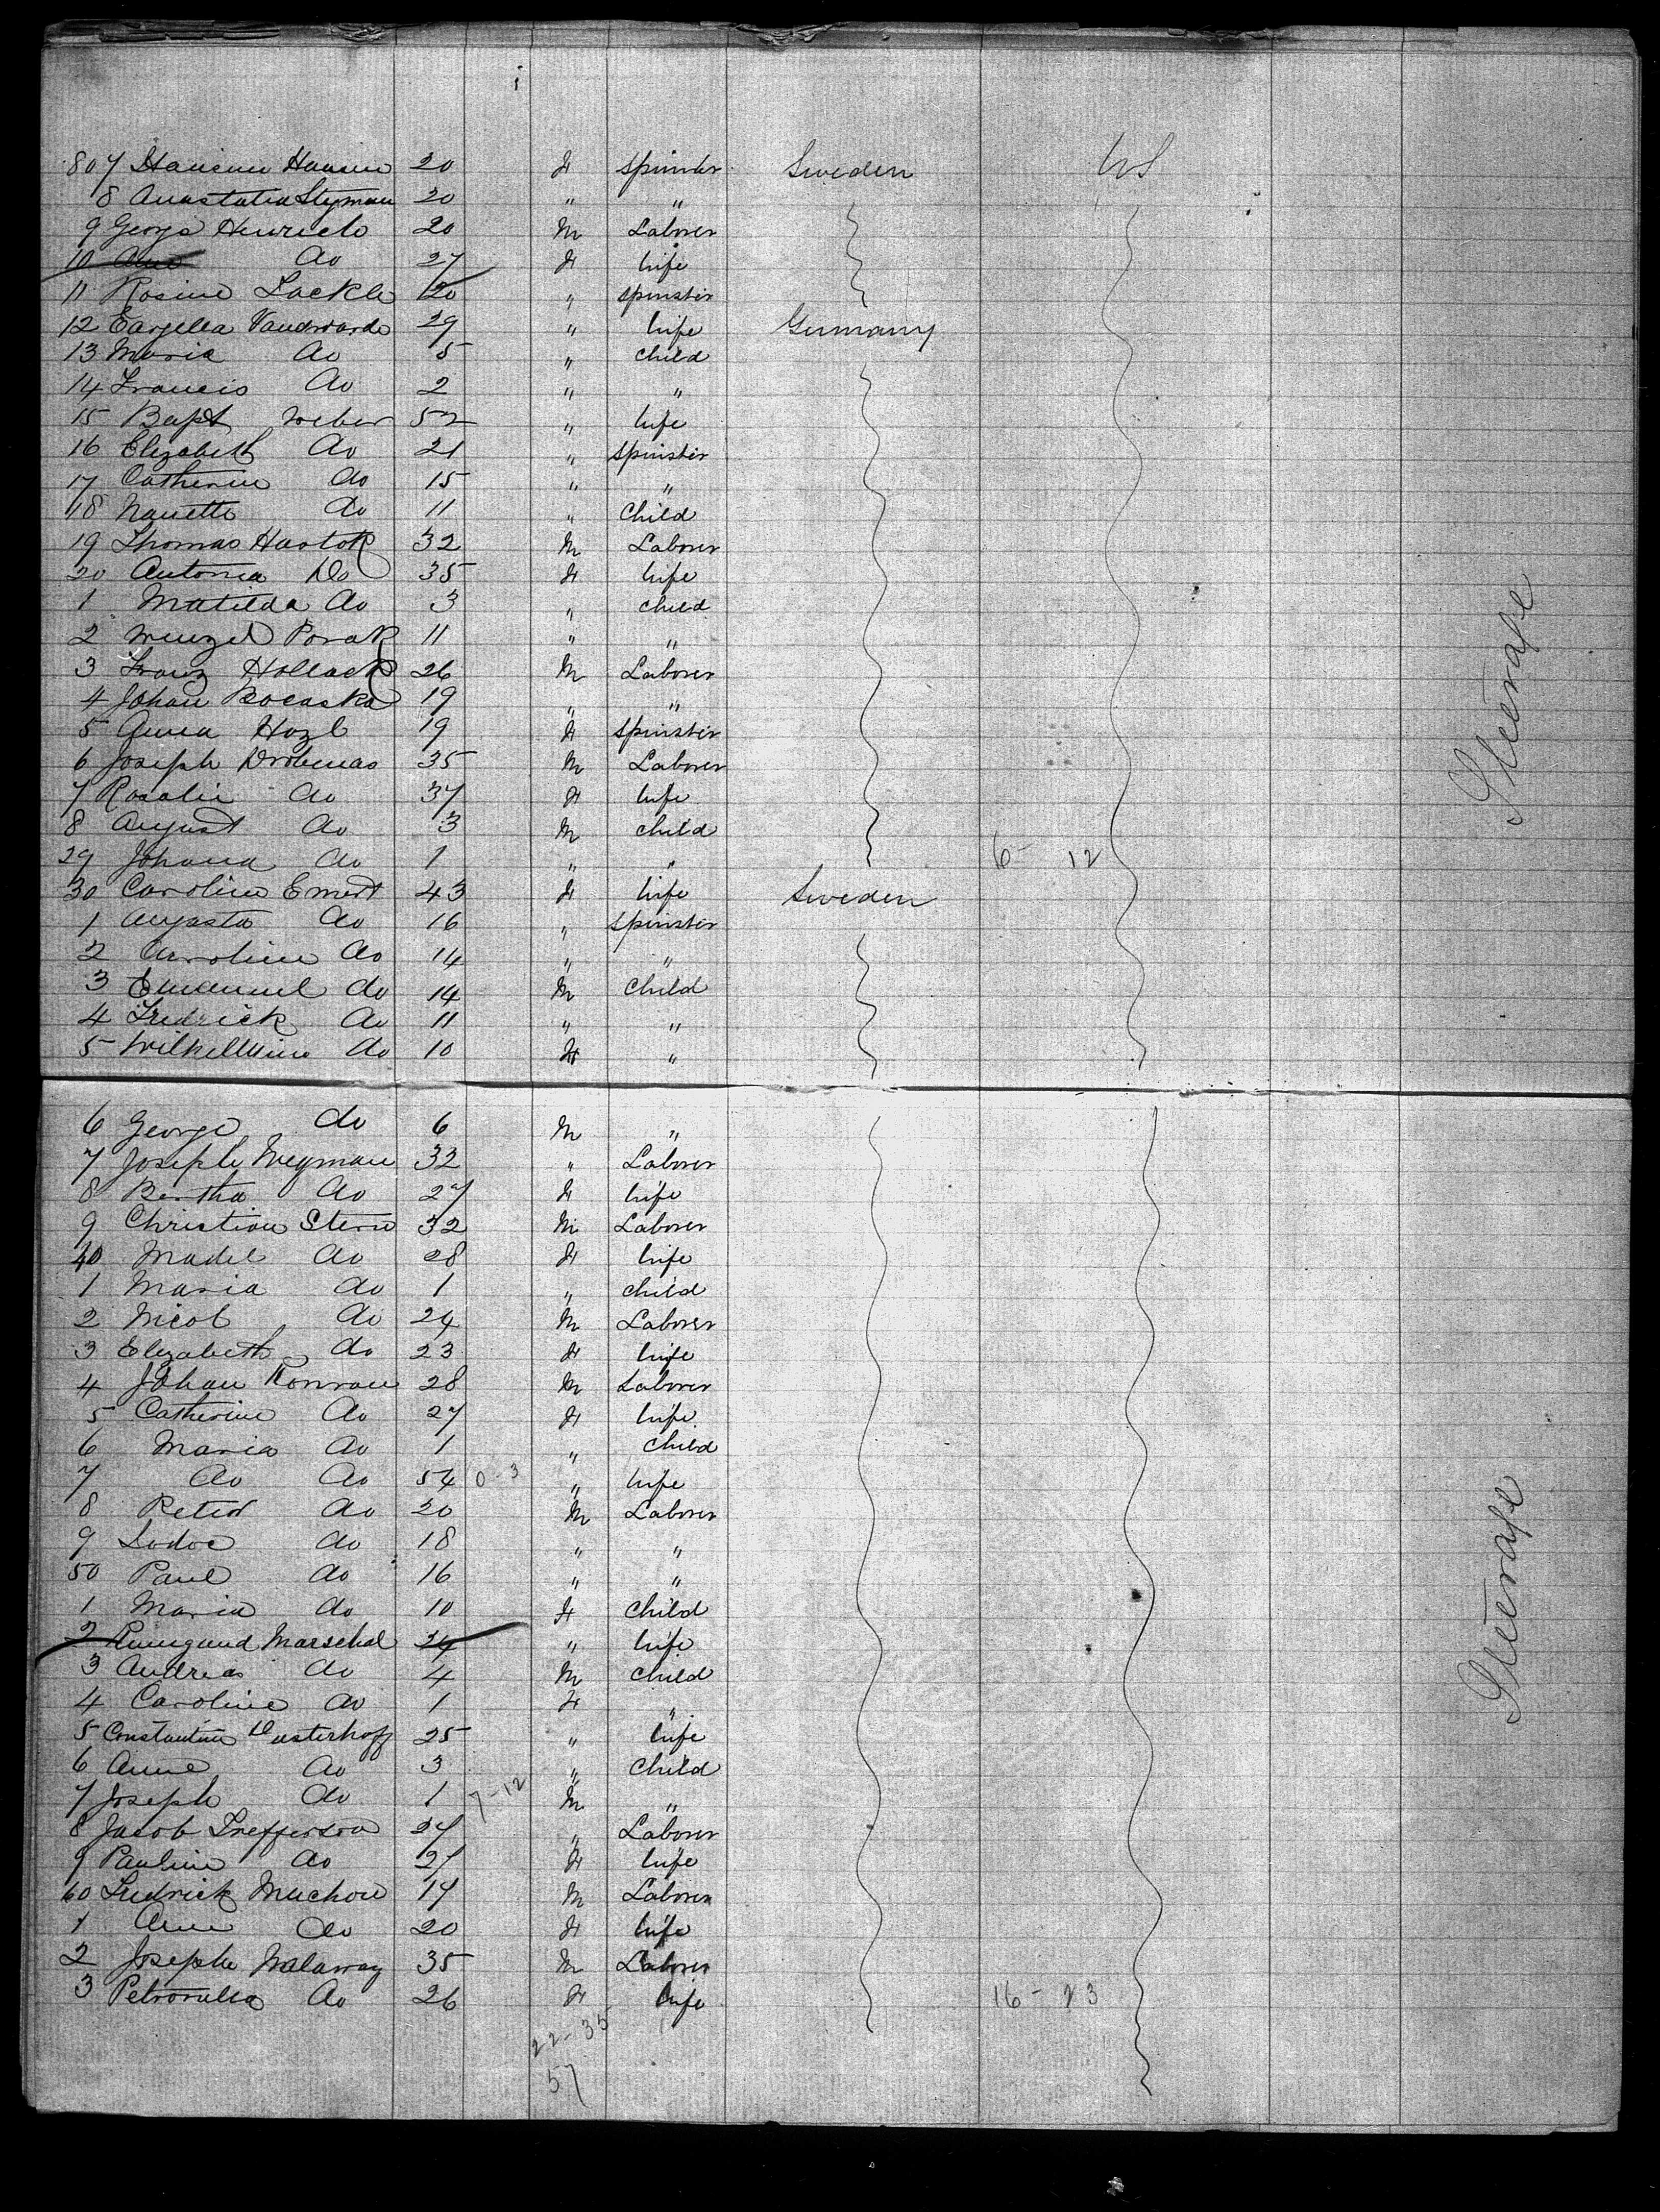 807 Hansine Hansen 20 F Spinster Sweden US
8 Anastatia Styman 20 " "
9 George Henrich 20 M Laborer
10 Ann do 27 F Wife
11 Rosine Lackle 20 " Spinster
12 Vandwarde 29 " Wife Germany
13 Maria do 5 " Child
14 Francis do 2 " "
15 Bapt Weber 52 " Wife
16 Elizabeth do 21 " Spinster
17 Catherine do 15 " "
18 Nanette do 11 " Child
19 Thomas Hastok 32 M Laborer
20 Antonia Do 35 F Wife
1 Matilda do 3 " Child
2 Wenzel Porak 11 " "
3 Franz Hollack 26 M Laborer
4 Johan Rocaska 19 " "
5 Anna Hozl 19 F Spinster
6 Joseph Drobenas 35 M Laborer
7 Rosalie do 37 F Wife
8 August do 3 M Child
29 Johana do 1 " " 6- 12
30 Caroline Emert 43 F Wife Sweden
1 Augusta do 16 " Spinster
2 Caroline do 14 " "
3 Emanuel do 14 M Child
4 Fredrick do 11 " "
5 Wilhelmine do 10 F "
Steerage
6 George do 6 M "
7 Joseph Wegman 32 " Laborer
8 Bertha do 27 F Wife
9 Christian Stern 32 M Laborer
40 Madel do 28 F Wife
1 Maria do 1 " Child
2 Nicol do 24 M Laborer
3 Elizabeth do 23 F Wife
4 Johan Konrau 28 M Laborer
5 Catherine do 27 F Wife
6 Maria do 1 " Child
7 do do 54 0-3 " Wife
8 Peter do 20 M Laborer
9 Lodoc do 18 " "
50 Paul do 16 " "
1 Maria do 10 F Child
2 Kunigund Marschal 24 " Wife
3 Andreas do 4 M Child
4 Caroline do 1 F "
5 Constantine Oasterhoff 25 " Wife
6 Anne do 3 " Child
7 Joseph do 1 7-12 M "
8 Jacob Trefferson 27 " Laborer
9 Pauline do 27 F Wife
60 Fredrick Muchow 17 M Laborer
1 Ann do 20 F Wife
2 Joseph Malaway 35 M Laborer
3 Petronella do 26 F Wife 16- 23
Steerage
22-35
57